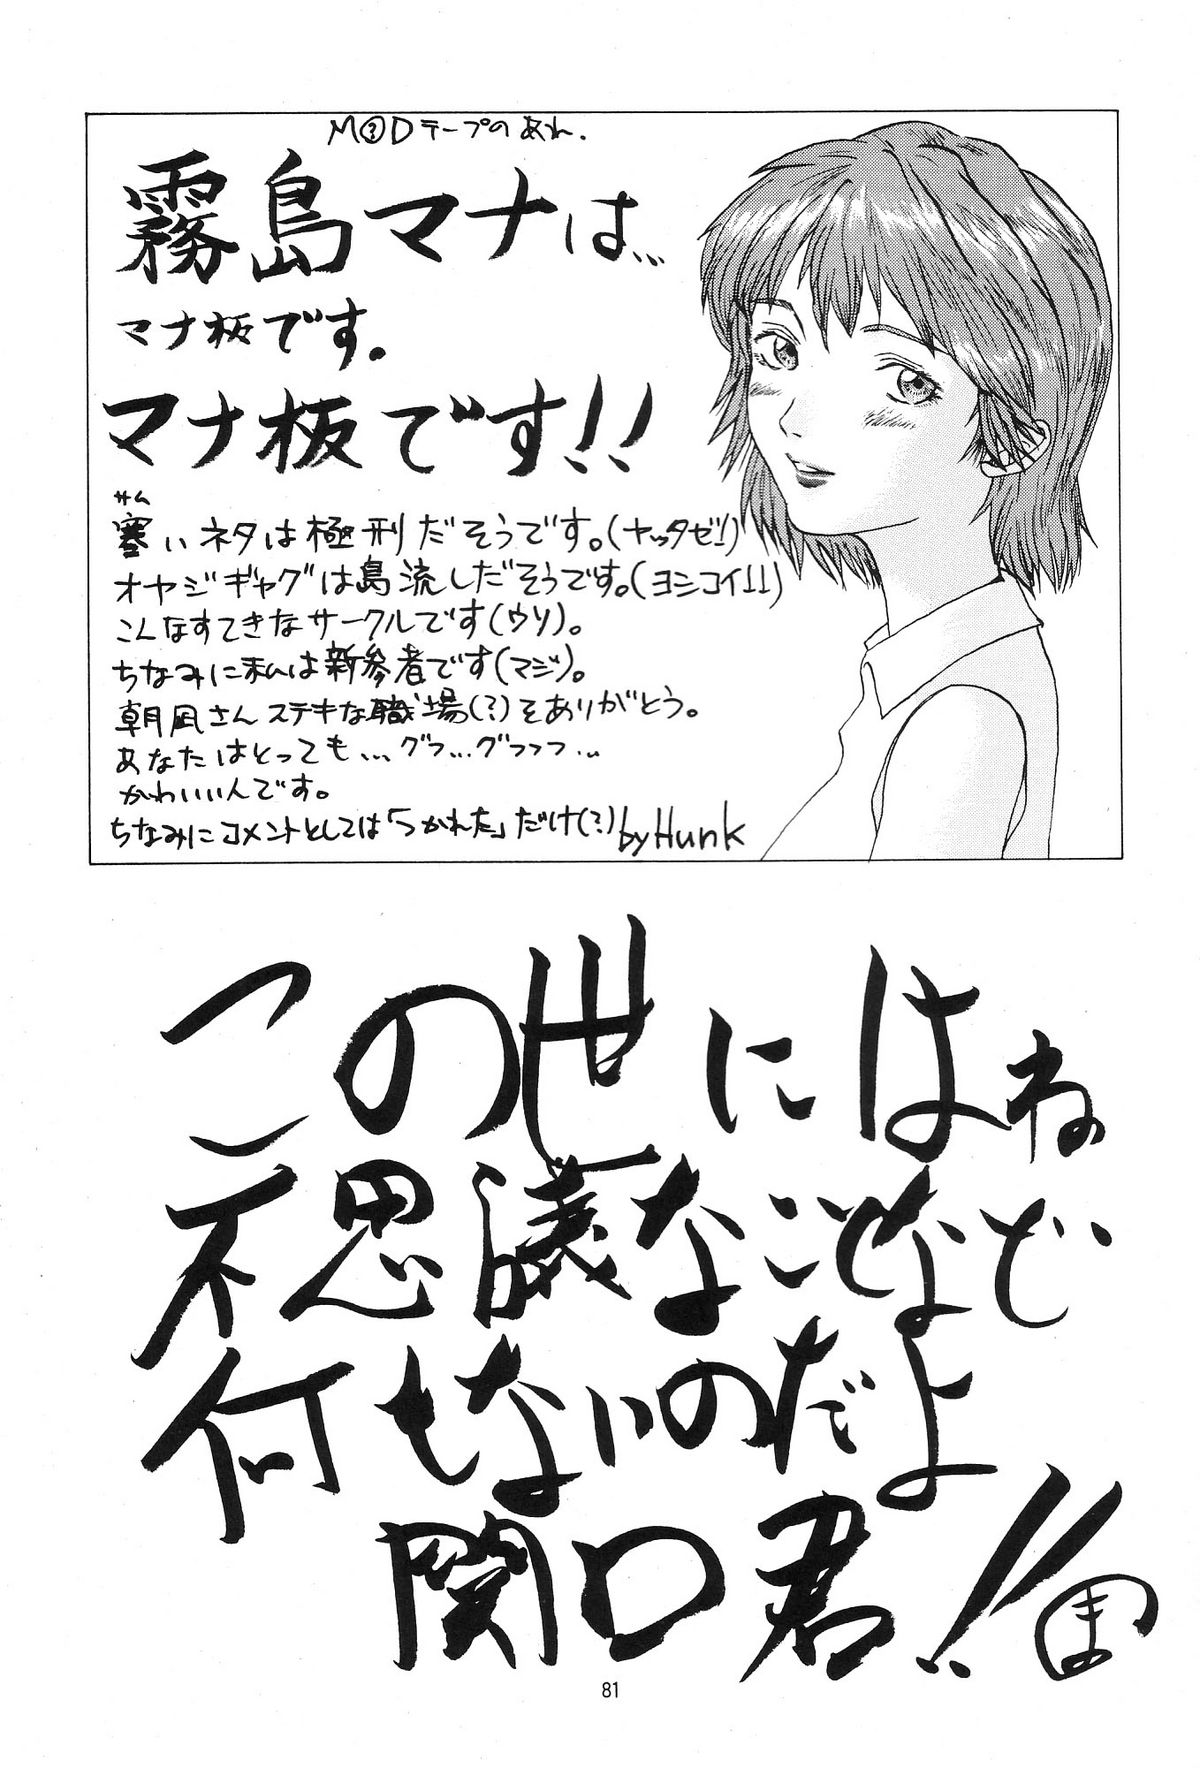 M?Dテープのあれ.
霧島マナは...
マナ板です。
マナ板です!!
サム
寒いネタは極刑だそうです。(ヤッタゼ!)
オヤジギャグは島流しだそうです。(ヨシコイ!!)
こんなすてきなサークルです(ウソ)。
ちなみに私は新参者です(マジ)。
朝凪さんステキな職場(?)をありがとう。
あなたはとっても...グフ...グフフフ...
かわいい人です。
ちなみにコメントとしては「つかれた」だけ(?) by Hunk
この世にはね
不思議なことなど
何もないのだよ
関口君!!
ま
81